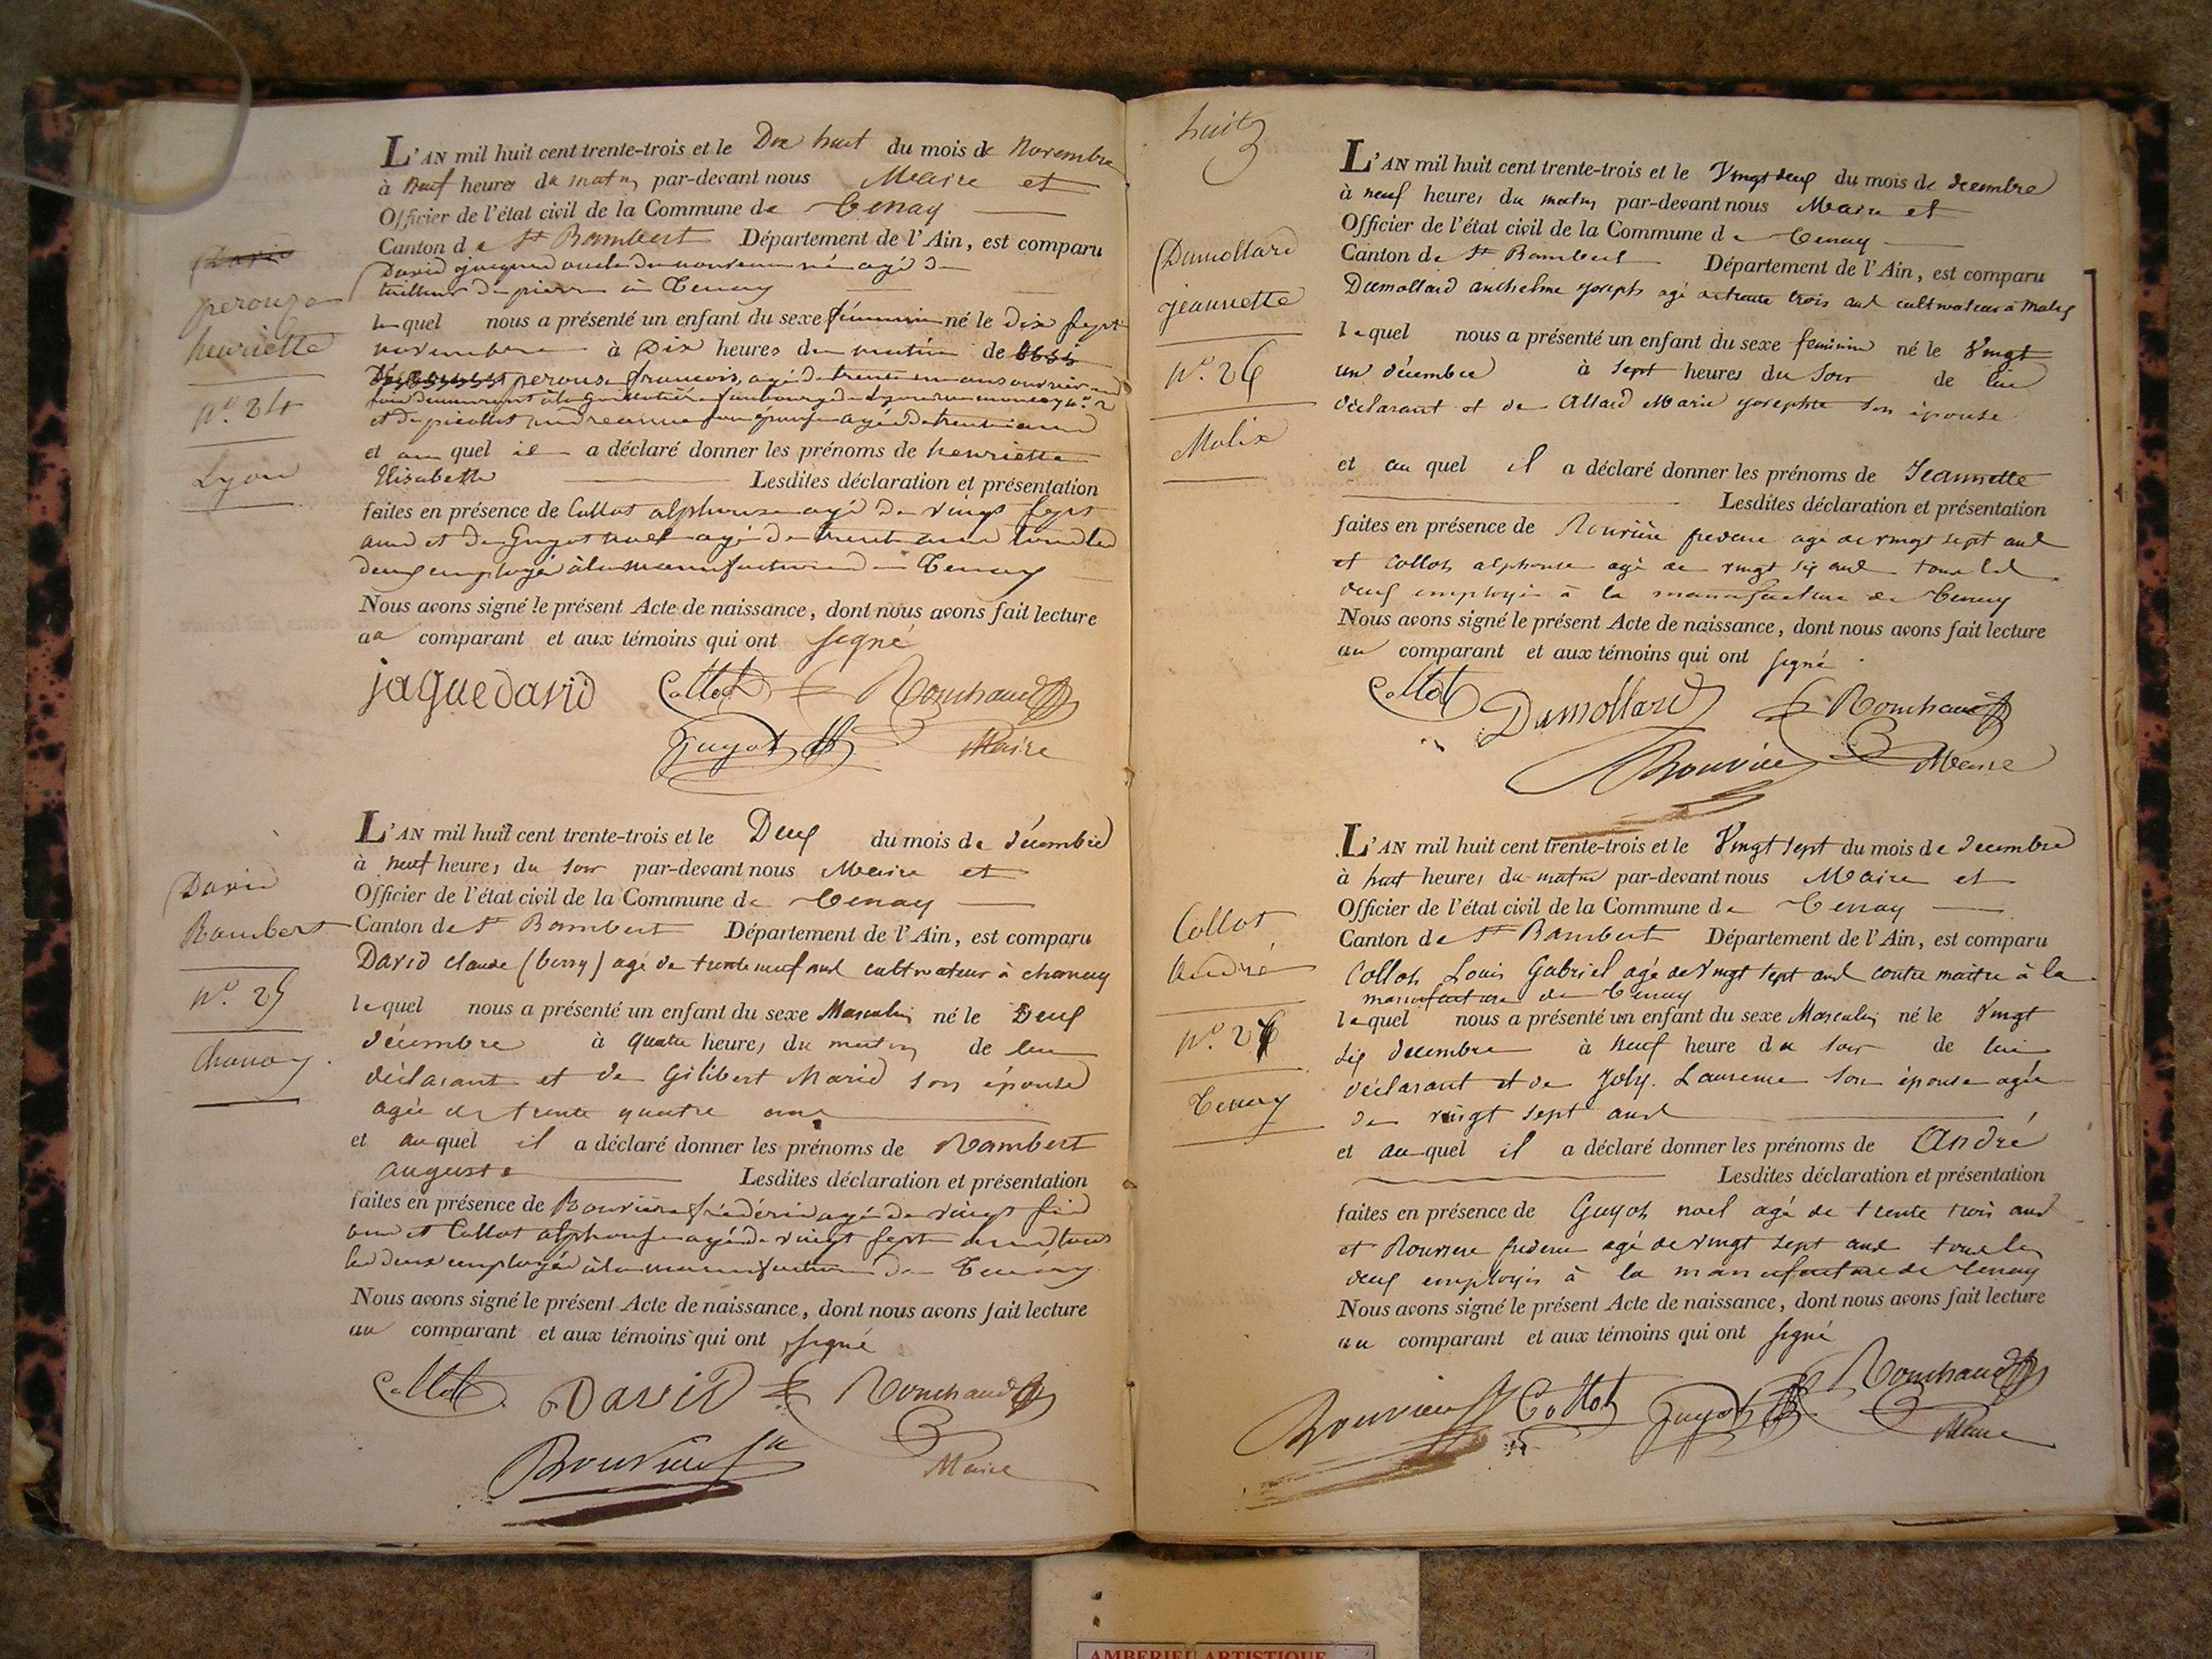 David
perouze
henriette
nº. 24
Lyon
L'AN mil huit cent trente-trois et le Dix huit du mois de Novembre
à neuf heures du matin par-devant nous Maire et
Officier de l'état civil de la Commune de Tenay
Canton de St Rambert Département de l'Ain, est comparu
David jacques oncle du nouveau né agé de
tailleur de pierre à Tenay
lequel nous a présenté un enfant du sexe féminin né le dix sept
novembre à Dix heures du matin de
perouse françois, agé de trente un ans ouvrier en
soie demeurant à la Guillotière faubourg de Lyon rue moncey nº. 2
et de son épouse agée de trente ans
et au quel il a déclaré donner les prénoms de henriette
Elisabeth Lesdites déclaration et présentation
faites en présence de Collot alphonse agé de vingt sept
ans et de Guyot noel agé de trente ans tous les
deux employés à la manufacture de Tenay
Nous avons signé le présent Acte de naissance, dont nous avons fait lecture
au comparant et aux témoins qui ont signé
jaque david Collot Ronchaud
Guyot Maire
David
Rambert
nº. 25
Chanay
L'AN mil huit cent trente-trois et le Deux du mois de décembre
à neuf heures du soir par-devant nous Maire et
Officier de l'état civil de la Commune de Tenay
Canton de St Rambert Département de l'Ain, est comparu
David claude (berry) agé de trente neuf ans cultivateur à chanay
lequel nous a présenté un enfant du sexe Masculin né le Deux
décembre à quatre heures du matin de lui
déclarant et de Gilibert Marie son épouse
agée de trente quatre ans
et au quel il a déclaré donner les prénoms de Rambert
auguste Lesdites déclaration et présentation
faites en présence de Rouvière frédéric agé de vingt six
ans et Collot alphonse agé de vingt sept ans tous
les deux employés à la manufacture de Tenay
Nous avons signé le présent Acte de naissance, dont nous avons fait lecture
au comparant et aux témoins qui ont signé
Collot David Ronchaud
Rouvière Maire
huit
Dumollard
jeannette
nº. 26
Malix
L'AN mil huit cent trente-trois et le Vingt deux du mois de decembre
à neuf heures du matin par-devant nous Maire et
Officier de l'état civil de la Commune de Tenay
Canton de St Rambert Département de l'Ain, est comparu
Dumollard anthelme joseph agé de trente trois ans cultivateur à Malix
lequel nous a présenté un enfant du sexe feminin né le Vingt
un décembre à sept heures du soir de lui
déclarant et de Allard Marie josephte son épouse
et au quel il a déclaré donner les prénoms de Jeannette
Lesdites déclaration et présentation
faites en présence de Rouvière frederic agé de vingt sept ans
et Collot alphonse agé de vingt six ans tous les
deux employés à la manufacture de Tenay
Nous avons signé le présent Acte de naissance, dont nous avons fait lecture
au comparant et aux témoins qui ont signé
Collot Dumollard Ronchaud
Rouvière Maire
Collot
André
nº. 27
Tenay
L'AN mil huit cent trente-trois et le Vingt sept du mois de decembre
à huit heures du matin par-devant nous Maire et
Officier de l'état civil de la Commune de Tenay
Canton de St Rambert Département de l'Ain, est comparu
Collot Louis Gabriel agé de vingt sept ans contre maitre à la
manufacture de Tenay
lequel nous a présenté un enfant du sexe Masculin né le Vingt
six decembre à neuf heure du soir de lui
déclarant et de Joly Laurence son épouse agée
de vingt sept ans
et au quel il a déclaré donner les prénoms de André
Lesdites déclaration et présentation
faites en présence de Guyot noel agé de trente trois ans
et Rouviere frederic agé de vingt sept ans tous les
deux employés à la manufacture de Tenay
Nous avons signé le présent Acte de naissance, dont nous avons fait lecture
au comparant et aux témoins qui ont signé
Rouviere Collot Guyot Ronchaud
Maire
AMBERIEU ARTISTIQUE